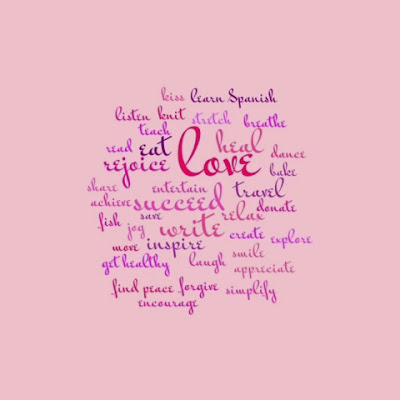 kiss learn Spanish
listen knit stretch breathe
teach
read eat love heal dance
rejoice bake
share entertain travel
achieve succeed donate
fish save relax
jog write create explore
move inspire
get healthy laugh smile
appreciate
find peace forgive simplify
encourage